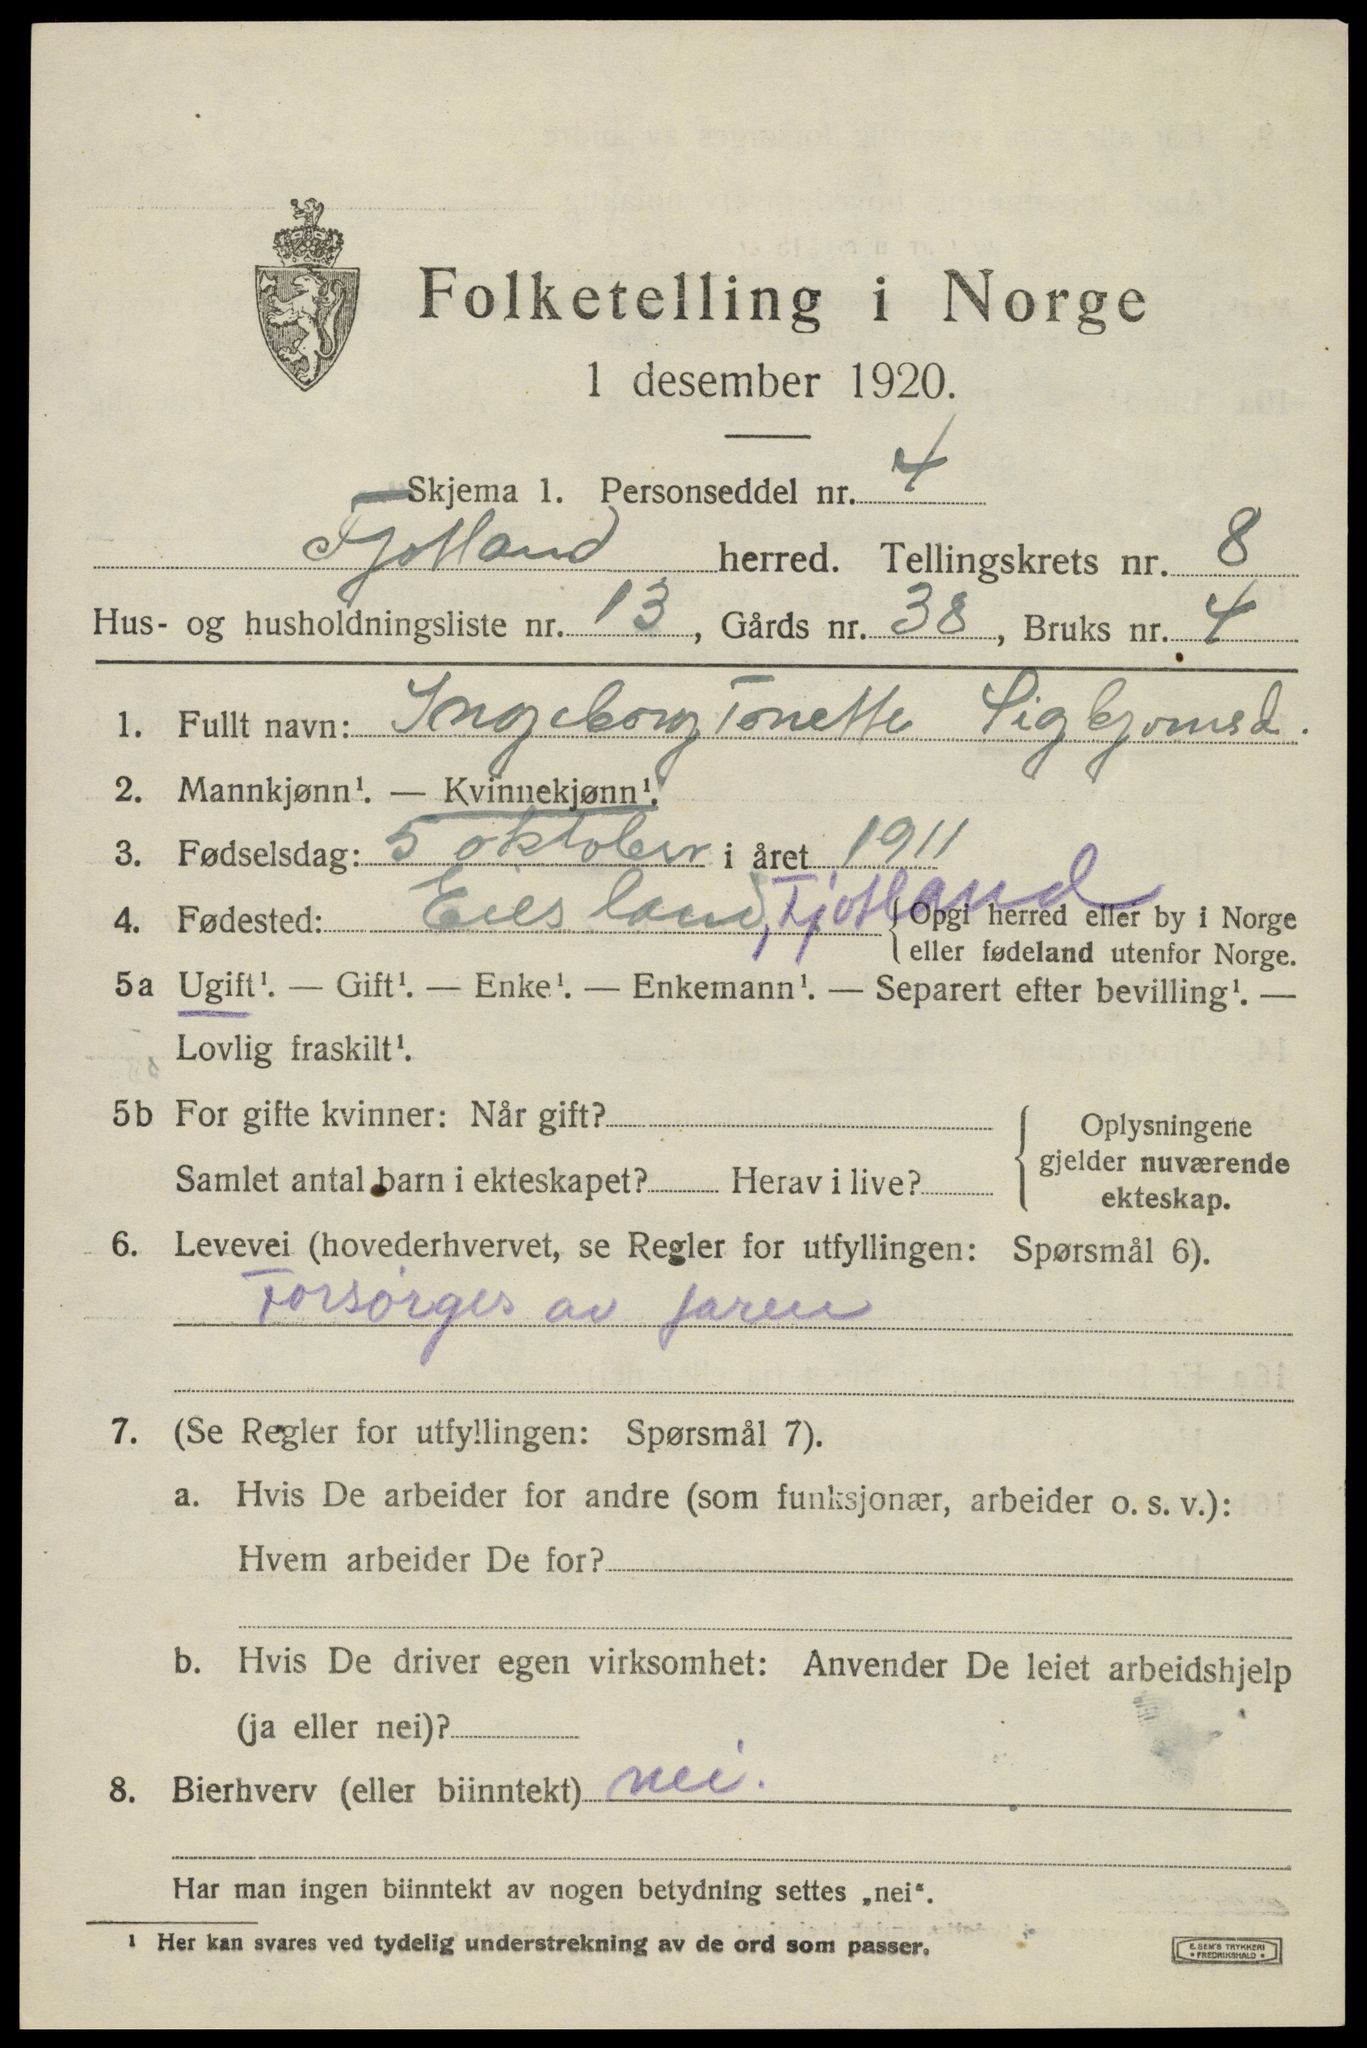 Folketelling i Norge
1 desember 1920.
Skjema 1. Personseddel nr. 4
Fjotland herred. Tellingskrets nr. 8
Hus- og husholdningsliste nr. 13, Gårds nr. 38, Bruks nr. 4
1. Fullt navn: Ingeborg Tonette Sigbjornsd.
2. Mannkjønn¹. — Kvinnekjønn¹.
3. Fødselsdag: 5 oktober i året 1911
4. Fødested: Eiesland, Fjotland {Opgi herred eller by i Norge
eller fødeland utenfor Norge.
5a Ugift¹. — Gift¹. — Enke¹. — Enkemann¹. — Separert efter bevilling¹. —
Lovlig fraskilt¹.
5b For gifte kvinner: Når gift?
Samlet antal barn i ekteskapet? Herav i live?
Oplysningene
gjelder nuværende
ekteskap.
6. Levevei (hovederhvervet, se Regler for utfyllingen: Spørsmål 6).
Forsørges av faren
7. (Se Regler for utfyllingen: Spørsmål 7).
a. Hvis De arbeider for andre (som funksjonær, arbeider o. s. v.):
Hvem arbeider De for?
b. Hvis De driver egen virksomhet: Anvender De leiet arbeidshjelp
(ja eller nei)?
8. Bierhverv (eller biinntekt) nei.
Har man ingen biinntekt av nogen betydning settes „nei“.
¹ Her kan svares ved tydelig understrekning av de ord som passer.
E. SEM'S TRYKKERI
* FREDRIKSHALD *